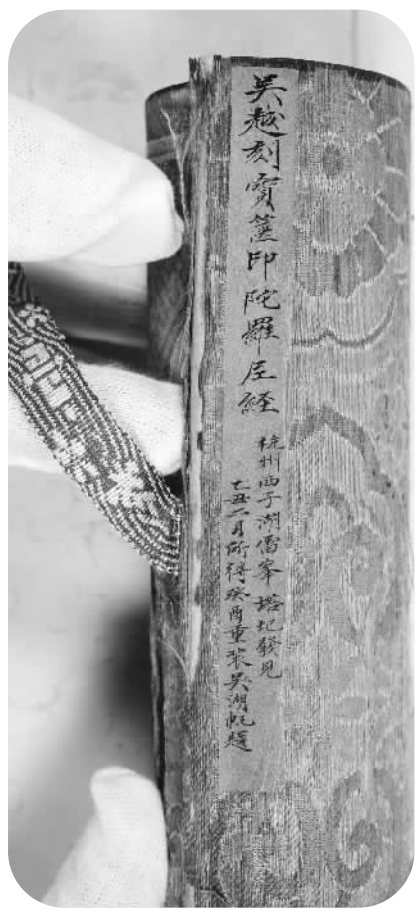 吳越刻寶篋印陀羅尼經
杭州西子湖雷峯塔圮發見
乙丑二月所得癸酉重裝吳湖帆題